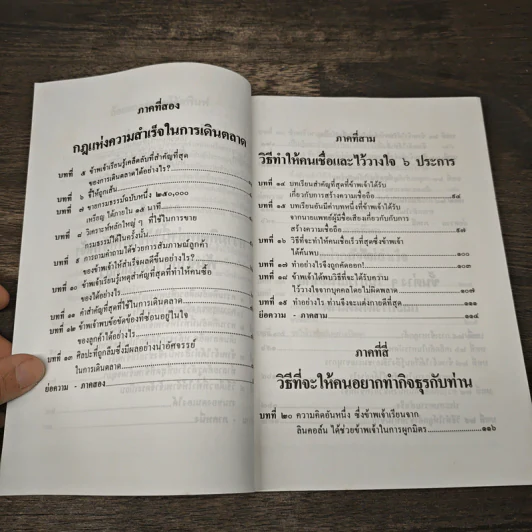 ภาคที่สอง
กฎแห่งความสำเร็จในการเดินตลาด
บทที่ ๕ ข้าพเจ้าเรียนรู้เคล็ดลับที่สำคัญที่สุด
ของการเดินตลาดได้อย่างไร?
บทที่ ๖ ชี้ให้ถูกเส้น
บทที่ ๗ ขายกรมธรรม์ฉบับหนึ่ง ๒๕๐,๐๐๐
เหรียญ ได้ภายใน ๑๕ นาที
บทที่ ๘ วิเคราะห์หลักใหญ่ ๆ ที่ใช้ในการขาย
กรมธรรม์ได้ในครั้งนั้น
บทที่ ๙ การถามคำถามได้ช่วยการสัมภาษณ์ลูกค้า
ของข้าพเจ้าให้สำเร็จผลดีขึ้นอย่างไร?
บทที่ ๑๐ ข้าพเจ้าเรียนรู้เหตุสำคัญที่สุดที่ทำให้คนซื้อ
ของได้อย่างไร
บทที่ ๑๑ คำสำคัญที่สุดที่ใช้ในการเดินตลาด
บทที่ ๑๒ ข้าพเจ้าพบข้อขัดข้องที่ซ่อนอยู่ในใจ
ของลูกค้าได้อย่างไร
บทที่ ๑๓ ศิลปะที่ถูกลืมซึ่งมีผลอย่างน่าอัศจรรย์
ในการเดินตลาด
ย่อความ - ภาคสอง
ภาคที่สาม
วิธีทำให้คนเชื่อและไว้วางใจ ๖ ประการ
บทที่ ๑๔ บทเรียนสำคัญที่สุดที่ข้าพเจ้าได้รับ
เกี่ยวกับการสร้างความเชื่อถือ
บทที่ ๑๕ บทเรียนอันมีค่าบทหนึ่งที่ข้าพเจ้าได้รับ
จากนายแพทย์ผู้มีชื่อเสียงเกี่ยวกับการ
สร้างความเชื่อถือ ๙๗
บทที่ ๑๖ วิธีที่จะทำให้คนเชื่อเร็วที่สุดซึ่งข้าพเจ้า
ได้ค้นพบ ๑๐๐
บทที่ ๑๗ ทำอย่างไรจึงถูกคัดออก! ๑๐๓
บทที่ ๑๘ ข้าพเจ้าได้พบวิธีที่จะได้รับความ
ไว้วางใจจากบุคคลโดยไม่ผิดพลาด ๑๐๗
บทที่ ๑๙ ทำอย่างไร ท่านจึงจะแต่งกายดีที่สุด ๑๑๑
ย่อความ - ภาคสาม ๑๑๔
ภาคที่สี่
วิธีที่จะให้คนอยากทำกิจธุรกับท่าน
บทที่ ๒๐ ความคิดอันหนึ่ง ซึ่งข้าพเจ้าเรียนจาก
ลินคอล์น ได้ช่วยข้าพเจ้าในการผูกมิตร ๑๑๖